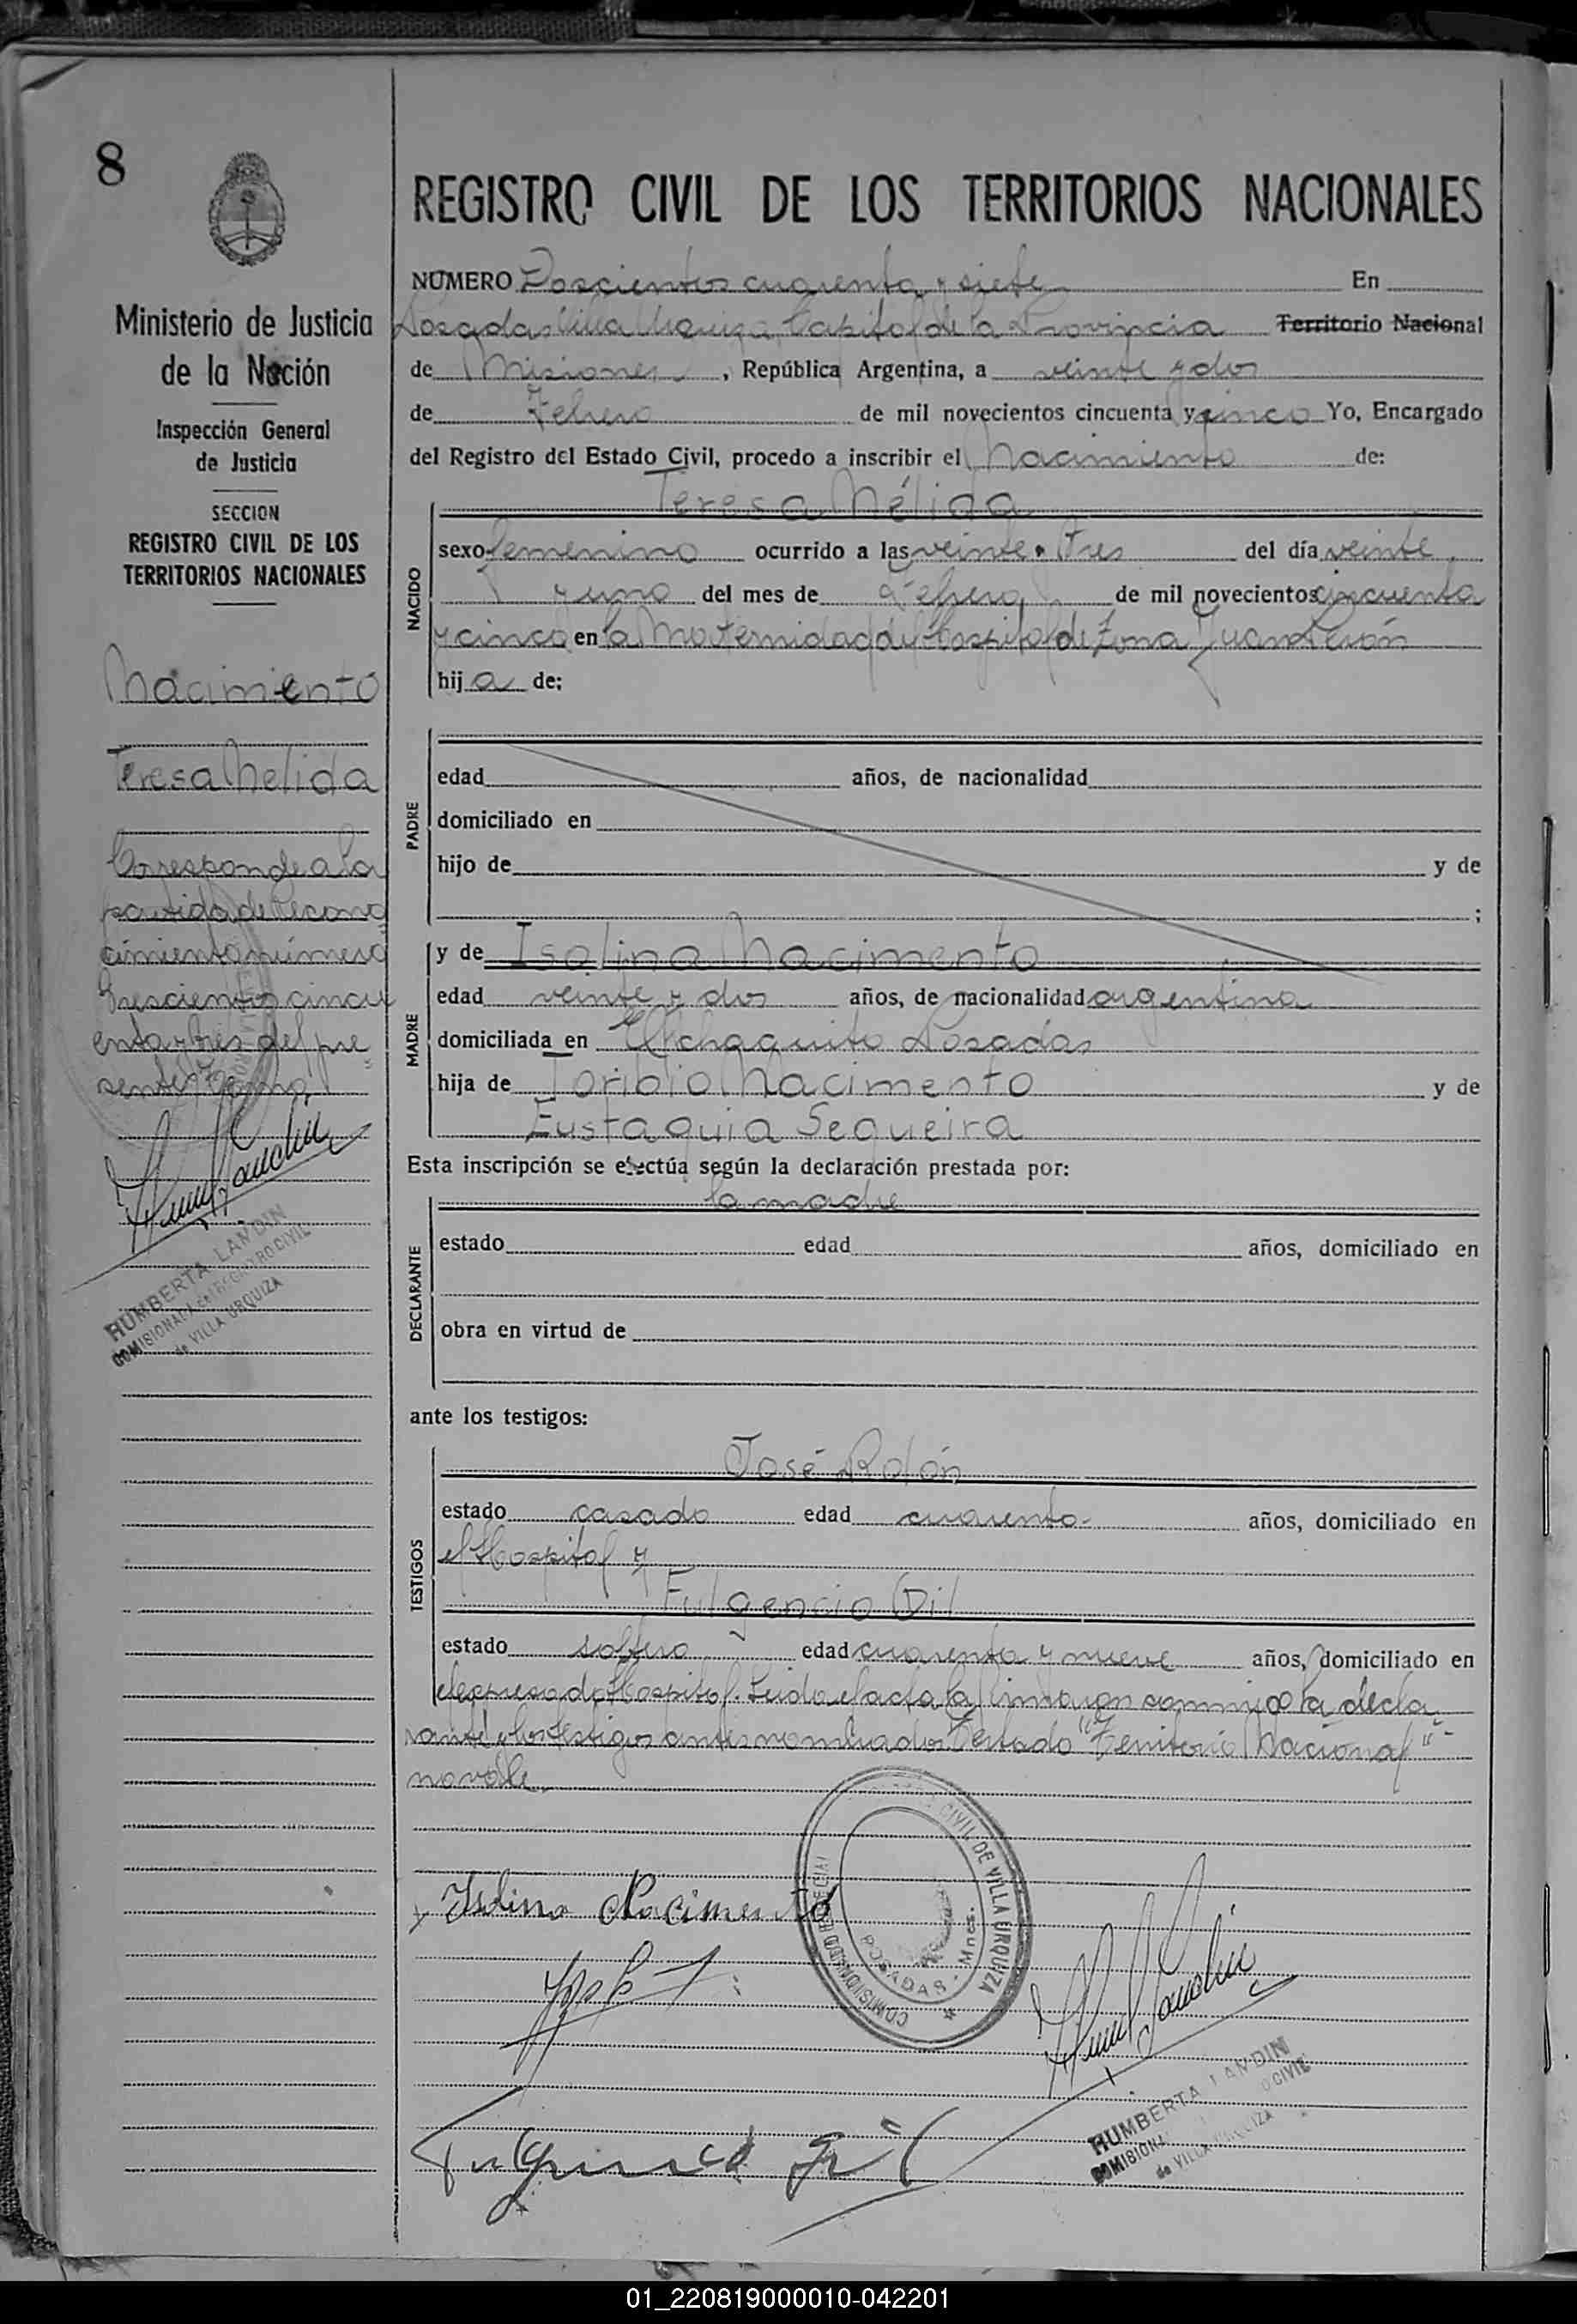 8
Ministerio de Justicia
de la Nación
Inspección General
de Justicia
SECCION
REGISTRO CIVIL DE LOS
TERRITORIOS NACIONALES
Nacimiento
Teresa Nelida
Corresponde a la
partida de Recono
cimiento número
Trescientos cincu
enta y tres del pre
sente Tomo
HUMBERTA LANDIN
COMISIONADA del REGISTRO CIVIL
de VILLA URQUIZA
REGISTRO CIVIL DE LOS TERRITORIOS NACIONALES
NUMERO Doscientos cuarenta y siete En
Posadas Villa Urquiza, Capital de la Provincia Territorio Nacional
de Misiones, República Argentina, a veinte y dos
de Febrero de mil novecientos cincuenta y cinco Yo, Encargado
del Registro del Estado Civil, procedo a inscribir el Nacimiento de:
Teresa Nélida
NACIDO
sexo femenino ocurrido a las veinte y tres del día veinte
y uno del mes de Febrero de mil novecientos cincuenta
y cinco en la Maternidad del Hospital de Zona Juan Perón
hija de:
PADRE
edad años, de nacionalidad
domiciliado en
hijo de y de
;
MADRE
y de Isolina Nacimento
edad veinte y dos años, de nacionalidad argentina
domiciliada en El Chaquito Posadas
hija de Toribio Nacimento y de
Eustaquia Sequeira
Esta inscripción se efectúa según la declaración prestada por:
la madre
DECLARANTE
estado edad años, domiciliado en
obra en virtud de
ante los testigos:
José Rolón
TESTIGOS
estado casado edad cuarenta años, domiciliado en
el Hospital y
Fulgencio Gil
estado soltero edad cuarenta y nueve años, domiciliado en
el expresado Hospital. Leida el acta la firmaron conmigo la decla
rante y los testigos antes nombrados Testado "Territorio Nacional"
no vale
COMISIONADO ESPECIAL CIVIL DE VILLA URQUIZA
POSADAS - Mnes.
Isolina Nacimento
Fulgencio Gil
HUMBERTA LANDIN
COMISIONA O CIVIL
de VILLA URQUIZA
01_220819000010-042201